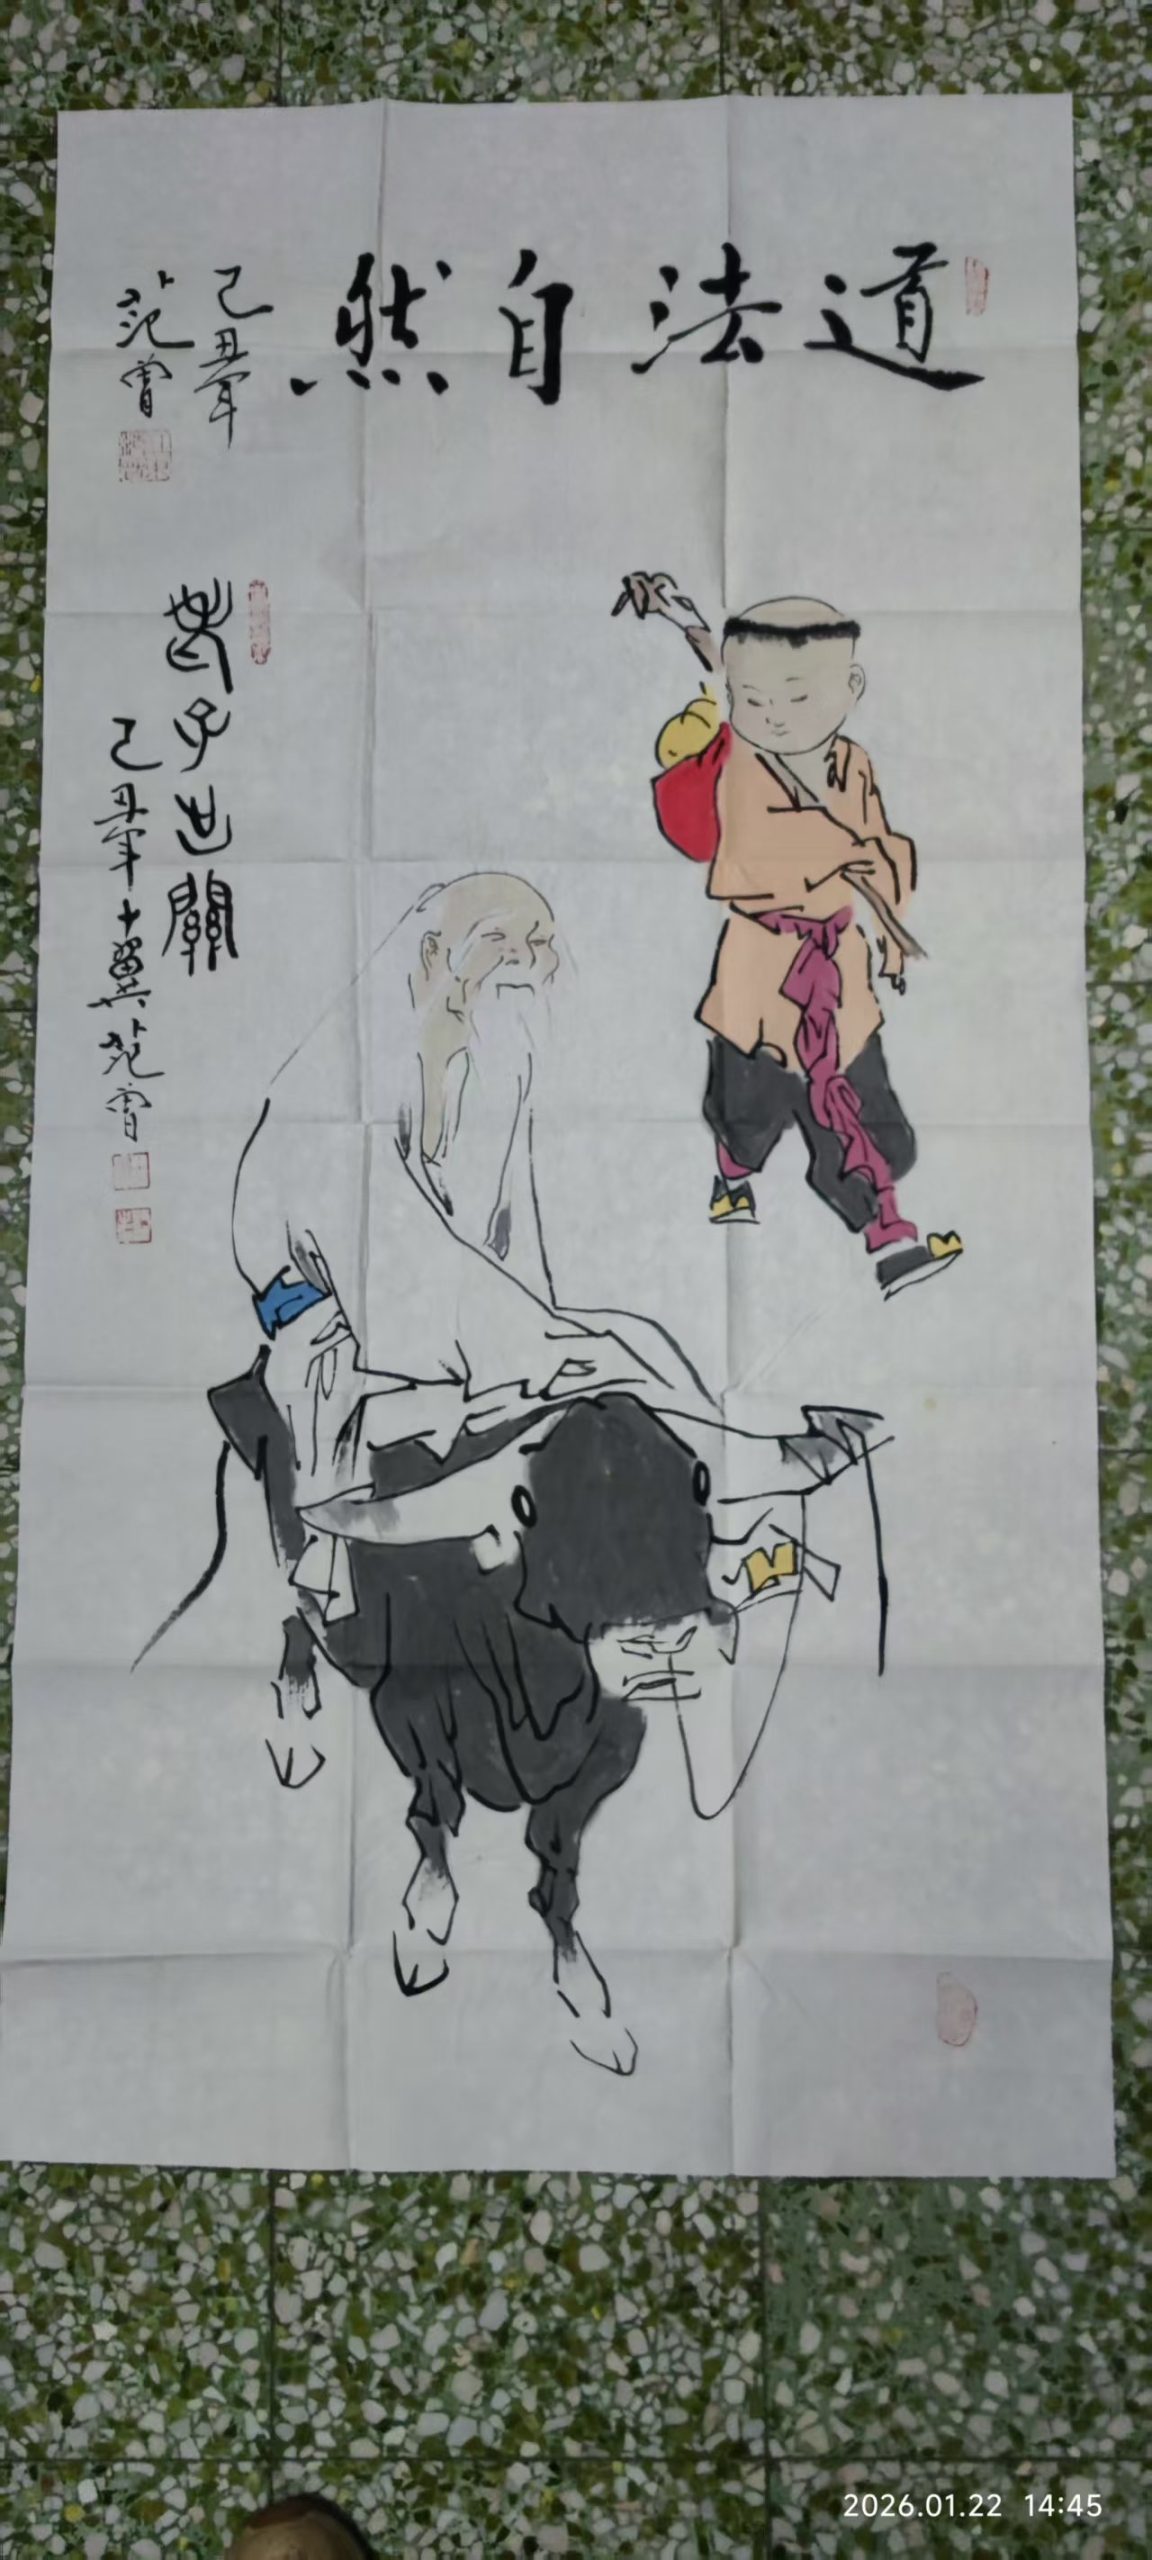 道法自然
己丑年
范曾
老子出關
己丑年十翼范曾
2026.01.22 14:45